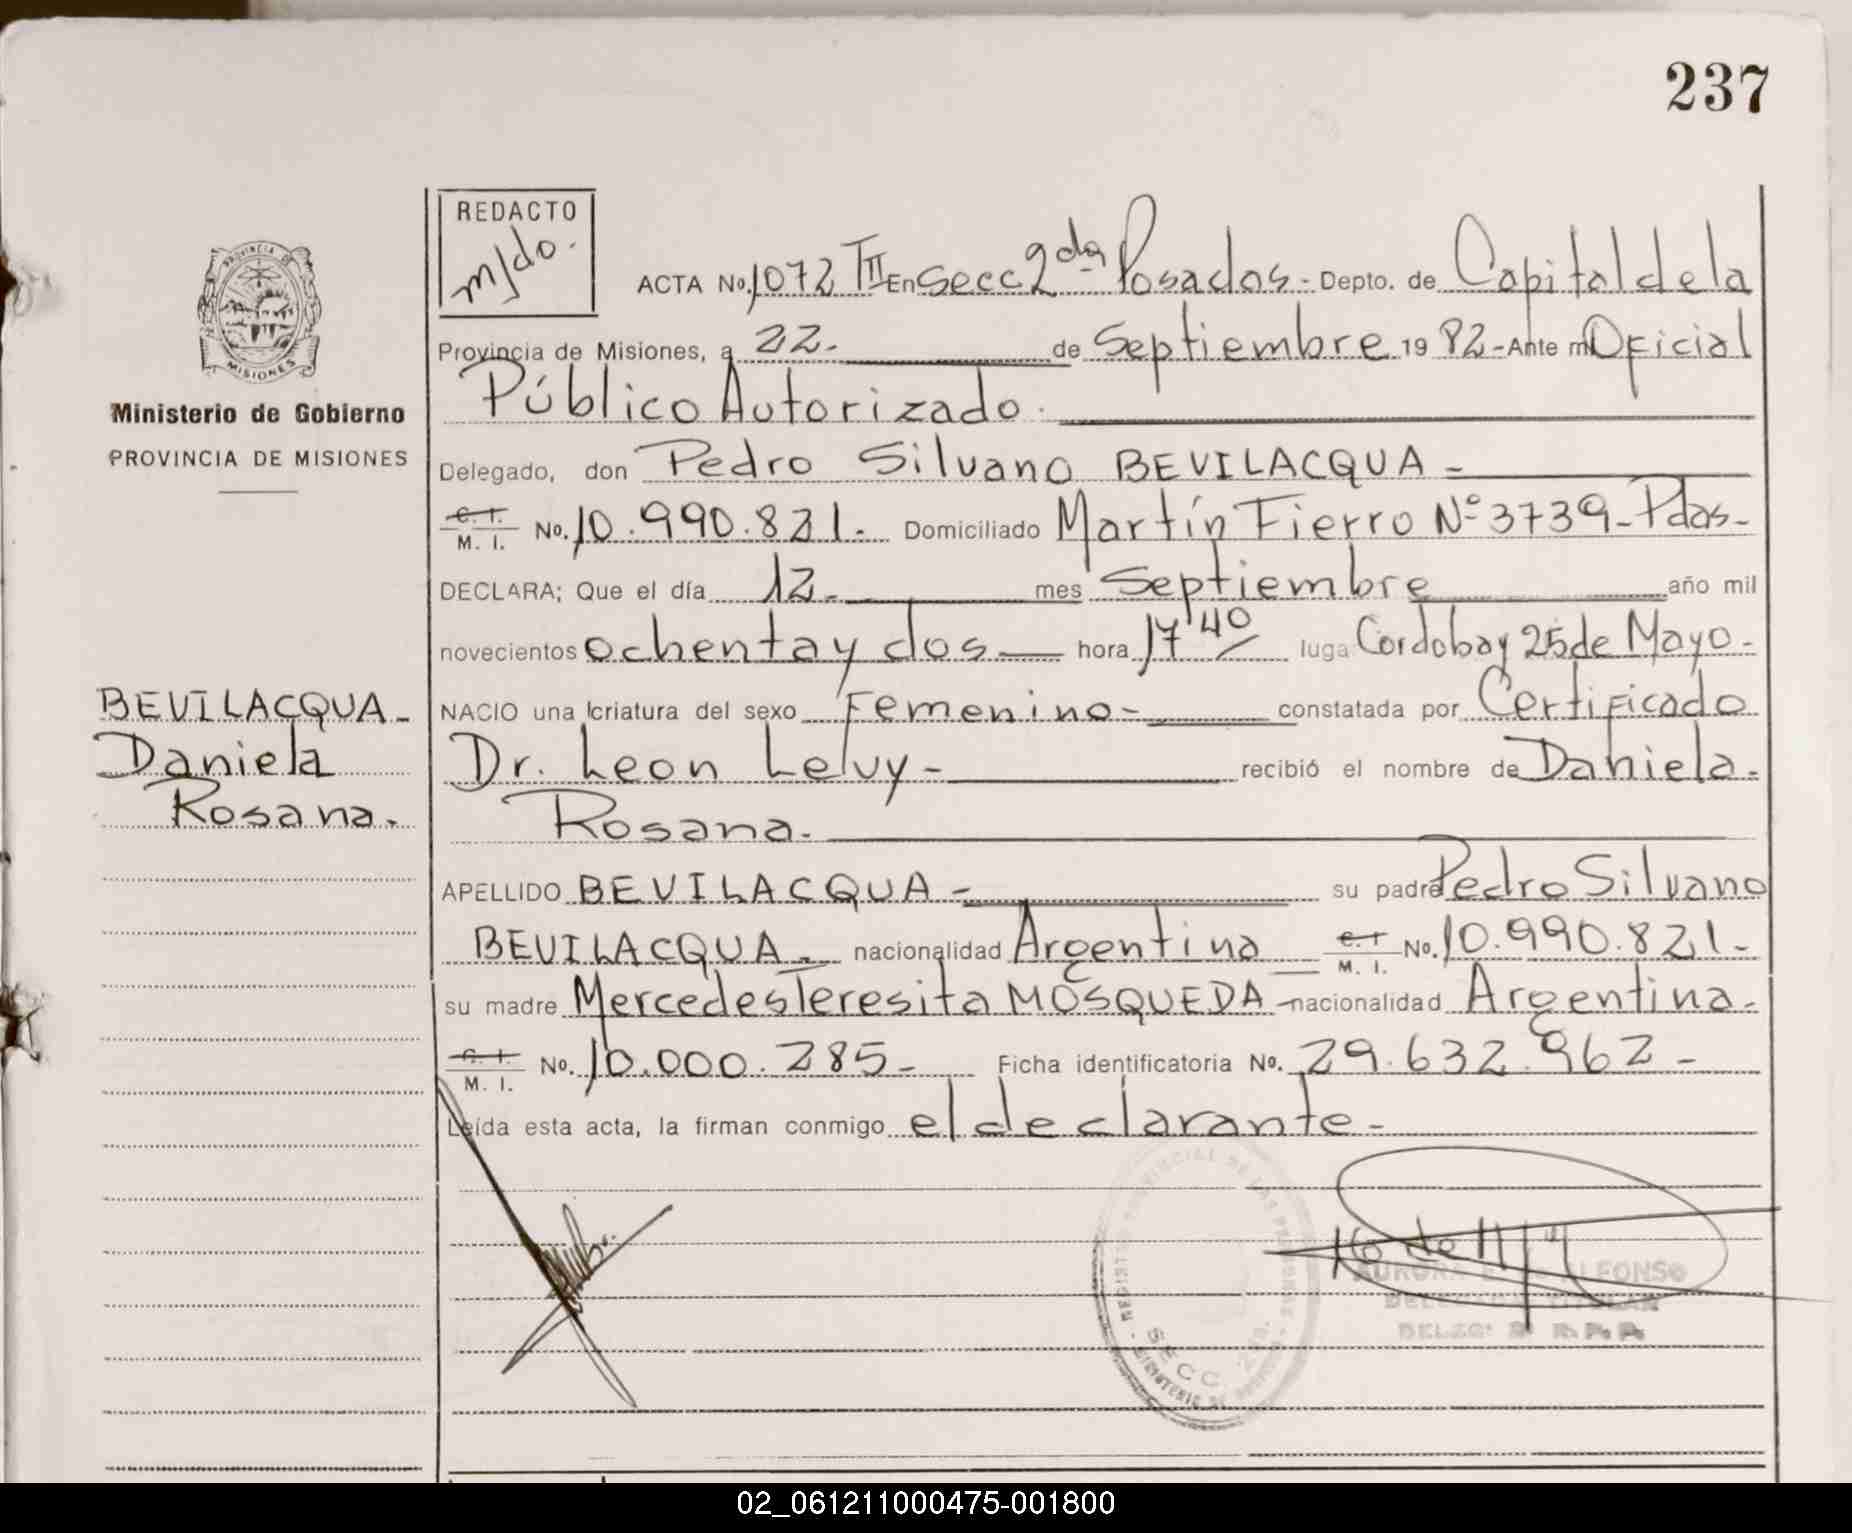 237
REDACTO
m/do.
ACTA No. 1072 TII En Secc 2da Posadas - Depto. de Capital de la
Provincia de Misiones, a 22.- de Septiembre 19 82 - Ante mi Oficial
Público Autorizado.
PROVINCIA DE
MISIONES
Ministerio de Gobierno
PROVINCIA DE MISIONES
Delegado, don Pedro Silvano BEVILACQUA -
C. I. M. I. No. 10.990.821.- Domiciliado Martín Fierro Nº 3739 - Pdas -
DECLARA; Que el día 12.- mes Septiembre año mil
novecientos ochenta y dos — hora 17'40 luga Cordoba y 25 de Mayo -
BEVILACQUA -
Daniela
Rosana.
NACIO una criatura del sexo Femenino - constatada por Certificado
Dr. Leon Lelvy - recibió el nombre de Daniela -
Rosana.
APELLIDO BEVILACQUA - su padre Pedro Silvano
BEVILACQUA - nacionalidad Argentina C. I. M. I. No. 10.990.821 -
su madre Mercedes Teresita MOSQUEDA - nacionalidad Argentina -
C. I. M. I. No. 10.000.285 - Ficha identificatoria No. 29.632.962 -
Leída esta acta, la firman conmigo el declarante -
SECC. 2da.
AURORA ALFONSO
DELEGADA TITULAR
02_061211000475-001800